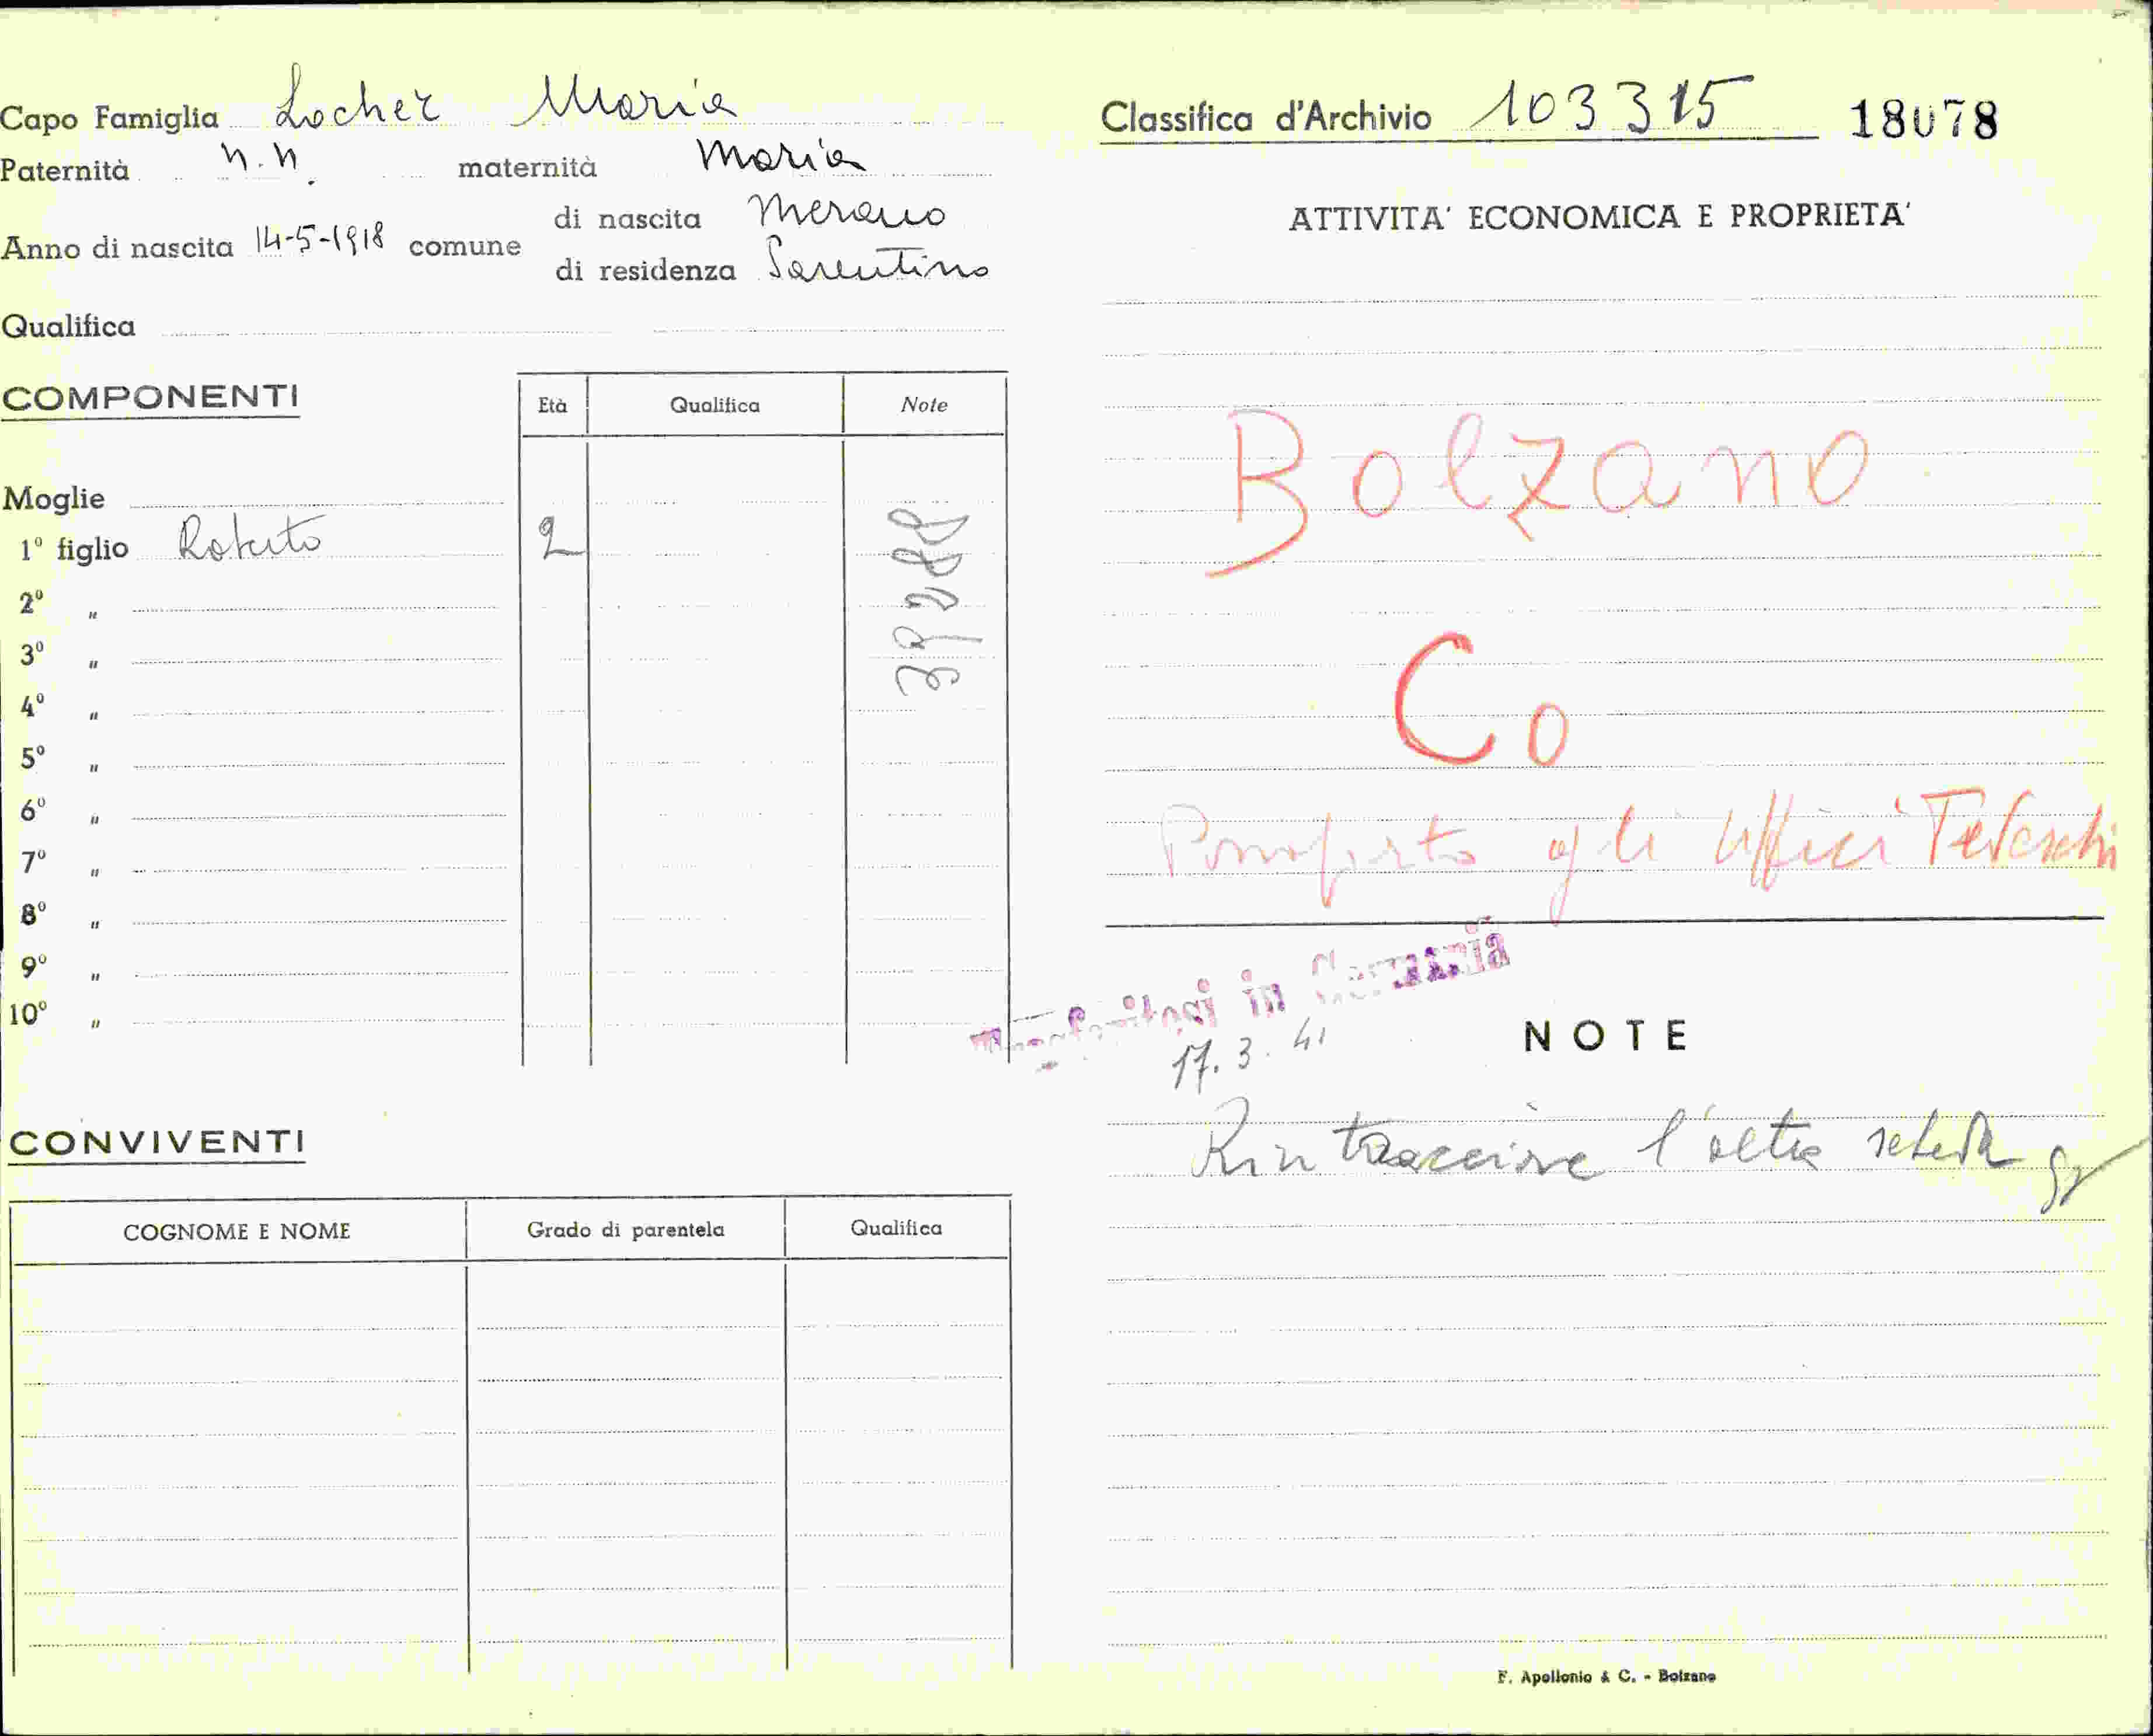 Capo Famiglia Locher Maria
Paternità n.n. maternità Maria
Anno di nascita 14-5-1918 comune di nascita Merano
di residenza Sarentino
Qualifica
COMPONENTI
Età Qualifica Note
Moglie
1º figlio Roberto 2
2º "
3º "
4º "
5º "
6º "
7º "
8º "
9º "
10º "
CONVIVENTI
COGNOME E NOME Grado di parentela Qualifica
Classifica d'Archivio 103315 18078
ATTIVITA' ECONOMICA E PROPRIETA'
Bolzano
Co
agli Uffici Tedeschi
Trasferitosi in Germania
17.3.41
NOTE
Rintracciare l'altra scheda
F. Apollonio & C. - Bolzano